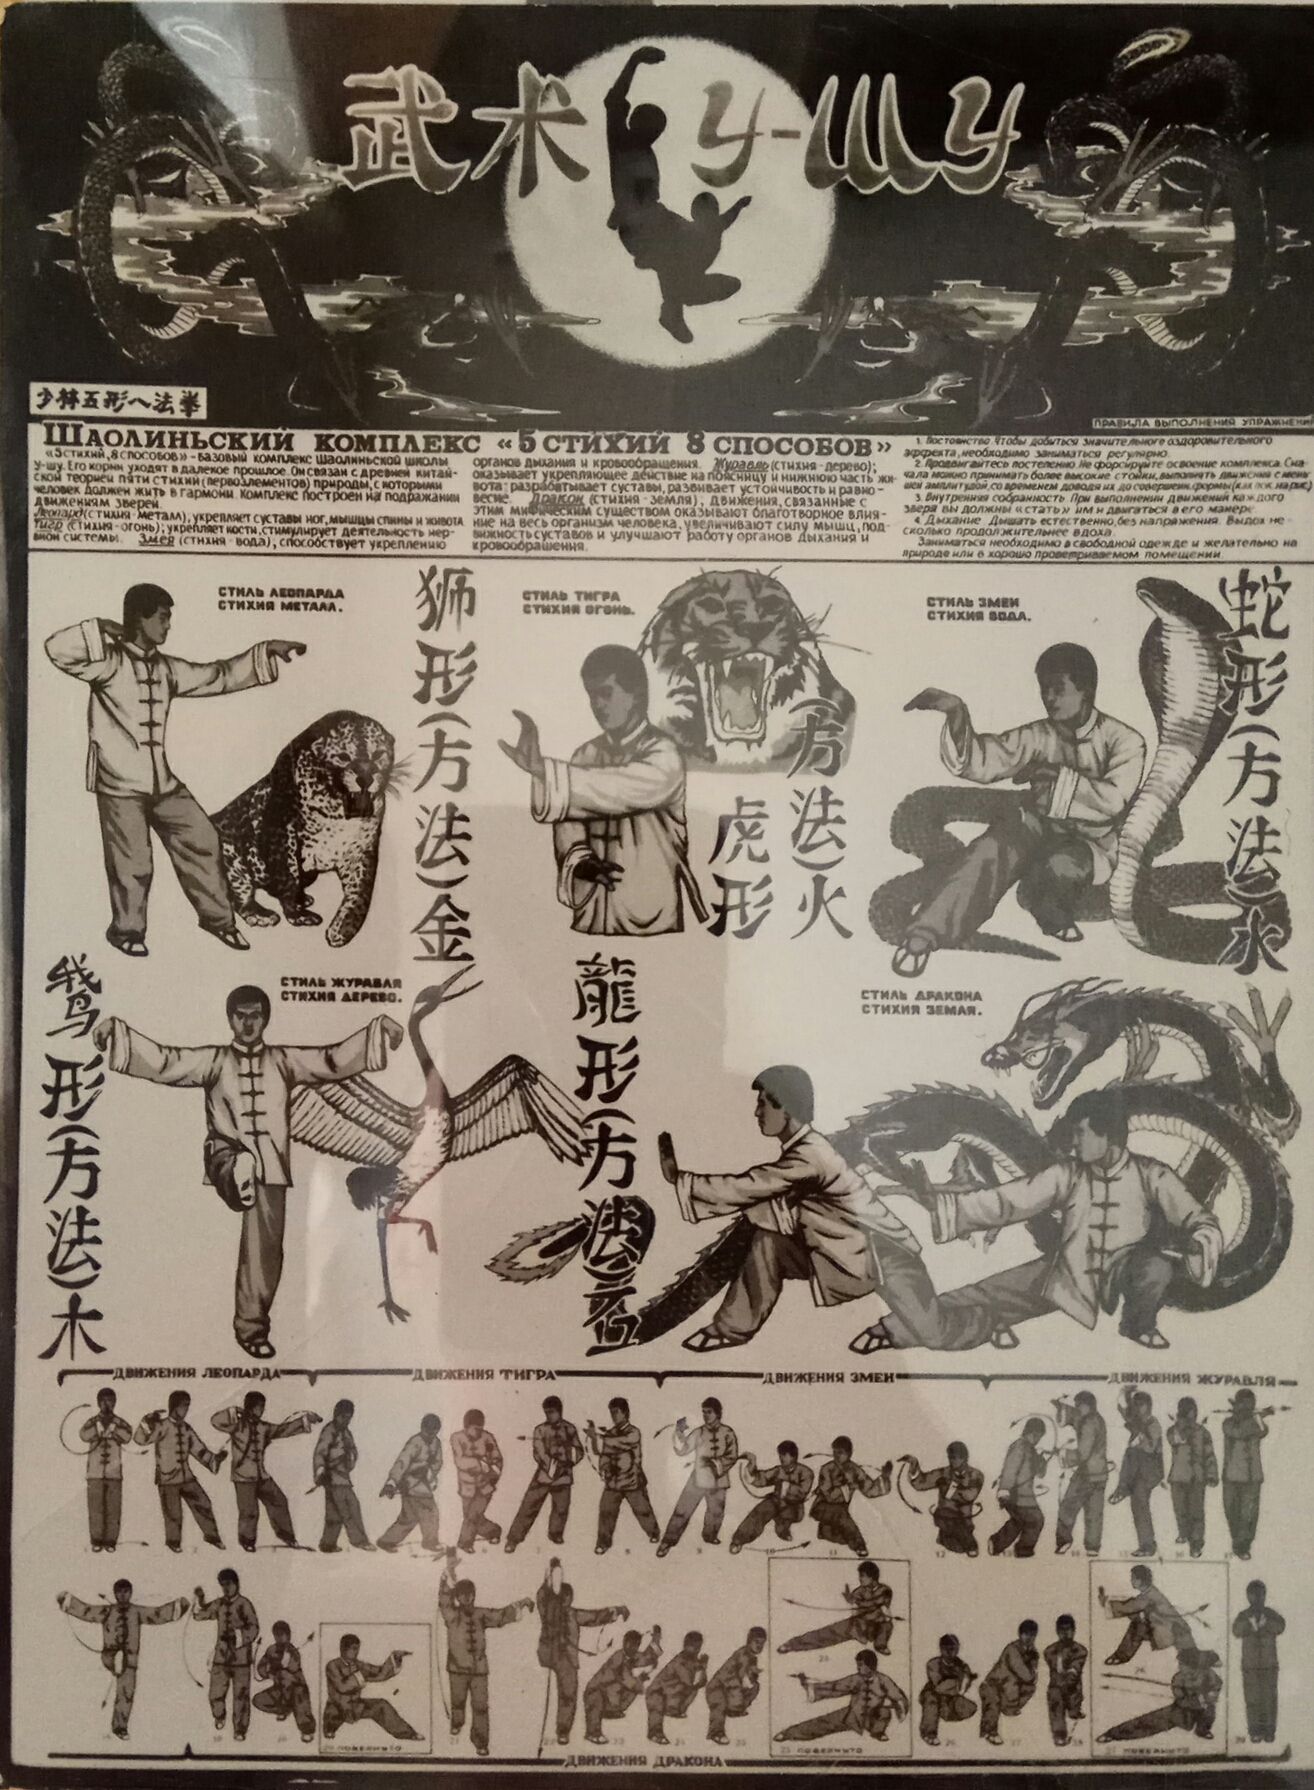 武术 У-ШУ
少林五形八法拳
ПРАВИЛА ВЫПОЛНЕНИЯ УПРАЖНЕНИ
ШАОЛИНЬСКИЙ КОМПЛЕКС «5 СТИХИЙ 8 СПОСОБОВ»
«5 СТИХИЙ, 8 СПОСОБОВ» - базовый комплекс Шаолиньской школы
У-шу. Его корни уходят в далекое прошлое. Он связан с древней китай-
ской теорией пяти стихий (первоэлементов) природы, с которыми
человек должен жить в гармонии. Комплекс построен на подражании
движениям зверей.
Леопард (стихия - металл), укрепляет суставы ног, мышцы спины и живота
Тигр (стихия - огонь), укрепляет кости, стимулирует деятельность нер-
вной системы. Змея (стихия - вода), способствует укреплению
органов дыхания и кровообращения. Журавль (стихия - дерево);
оказывает укрепляющее действие на поясницу и нижнюю часть жи-
вота: разрабатывает суставы, развивает устойчивость и равно-
весие. Дракон (стихия - земля); движения, связанные с
этим мифическим существом оказывают благотворное влия-
ние на весь организм человека, увеличивают силу мышц, под-
вижность суставов и улучшают работу органов дыхания и
кровообращения.
1. Постоянство. Чтобы добиться значительного оздоровительного
эффекта, необходимо заниматься регулярно.
2. Продвигайтесь постепенно. Не форсируйте освоение комплекса. Сна-
чала можно принимать более высокие стойки, выполнять движения с мень-
шей амплитудой, со временем доводя их до совершенн. формы (как пок. на рис.)
3. Внутренняя собранность. При выполнении движений каждого
зверя вы должны «стать» им и двигаться в его манере.
4. Дыхание. Дышать естественно, без напряжения. Выдох не-
сколько продолжительнее вдоха.
Заниматься необходимо в свободной одежде и желательно на
природе или в хорошо проветриваемом помещении.
СТИЛЬ ЛЕОПАРДА
СТИХИЯ МЕТАЛЛ.
狮形(方法)金
СТИЛЬ ТИГРА
СТИХИЯ ОГОНЬ.
虎形
(方法)火
СТИЛЬ ЗМЕИ
СТИХИЯ ВОДА.
蛇形(方法)水
鹅形(方法)木
СТИЛЬ ЖУРАВЛЯ
СТИХИЯ ДЕРЕВО.
龍形(方法)
СТИЛЬ ДРАКОНА
СТИХИЯ ЗЕМЛЯ.
ДВИЖЕНИЯ ЛЕОПАРДА
ДВИЖЕНИЯ ТИГРА
ДВИЖЕНИЯ ЗМЕИ
ДВИЖЕНИЯ ЖУРАВЛЯ
ПОВЕРНУТО
25 ПОВЕРНУТО
ПОВЕРНУТО
ДВИЖЕНИЯ ДРАКОНА